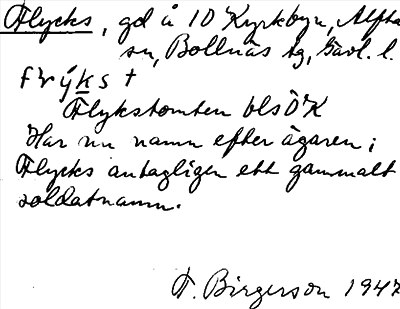 Flycks, gd å 10 Kyrkbyn, Alfta
sn, Bollnäs tg, Gävl. l.
frýks +
Flykstomten bls Ö K
Har nu namn efter ägaren;
Flycks antagligen ett gammalt
soldatnamn.
F. Birgerson 1947